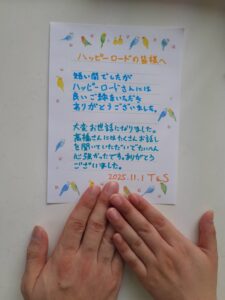 ハッピーロードの皆様へ
短い間でしたが
ハッピーロードさんには
良いご縁をいただき
ありがとうございました。
大変お世話になりました。
高橋さんにはたくさんお話し
を聞いていただいてたいへん
心強かったです。ありがとう
ございました。
2025.11.1 T&S